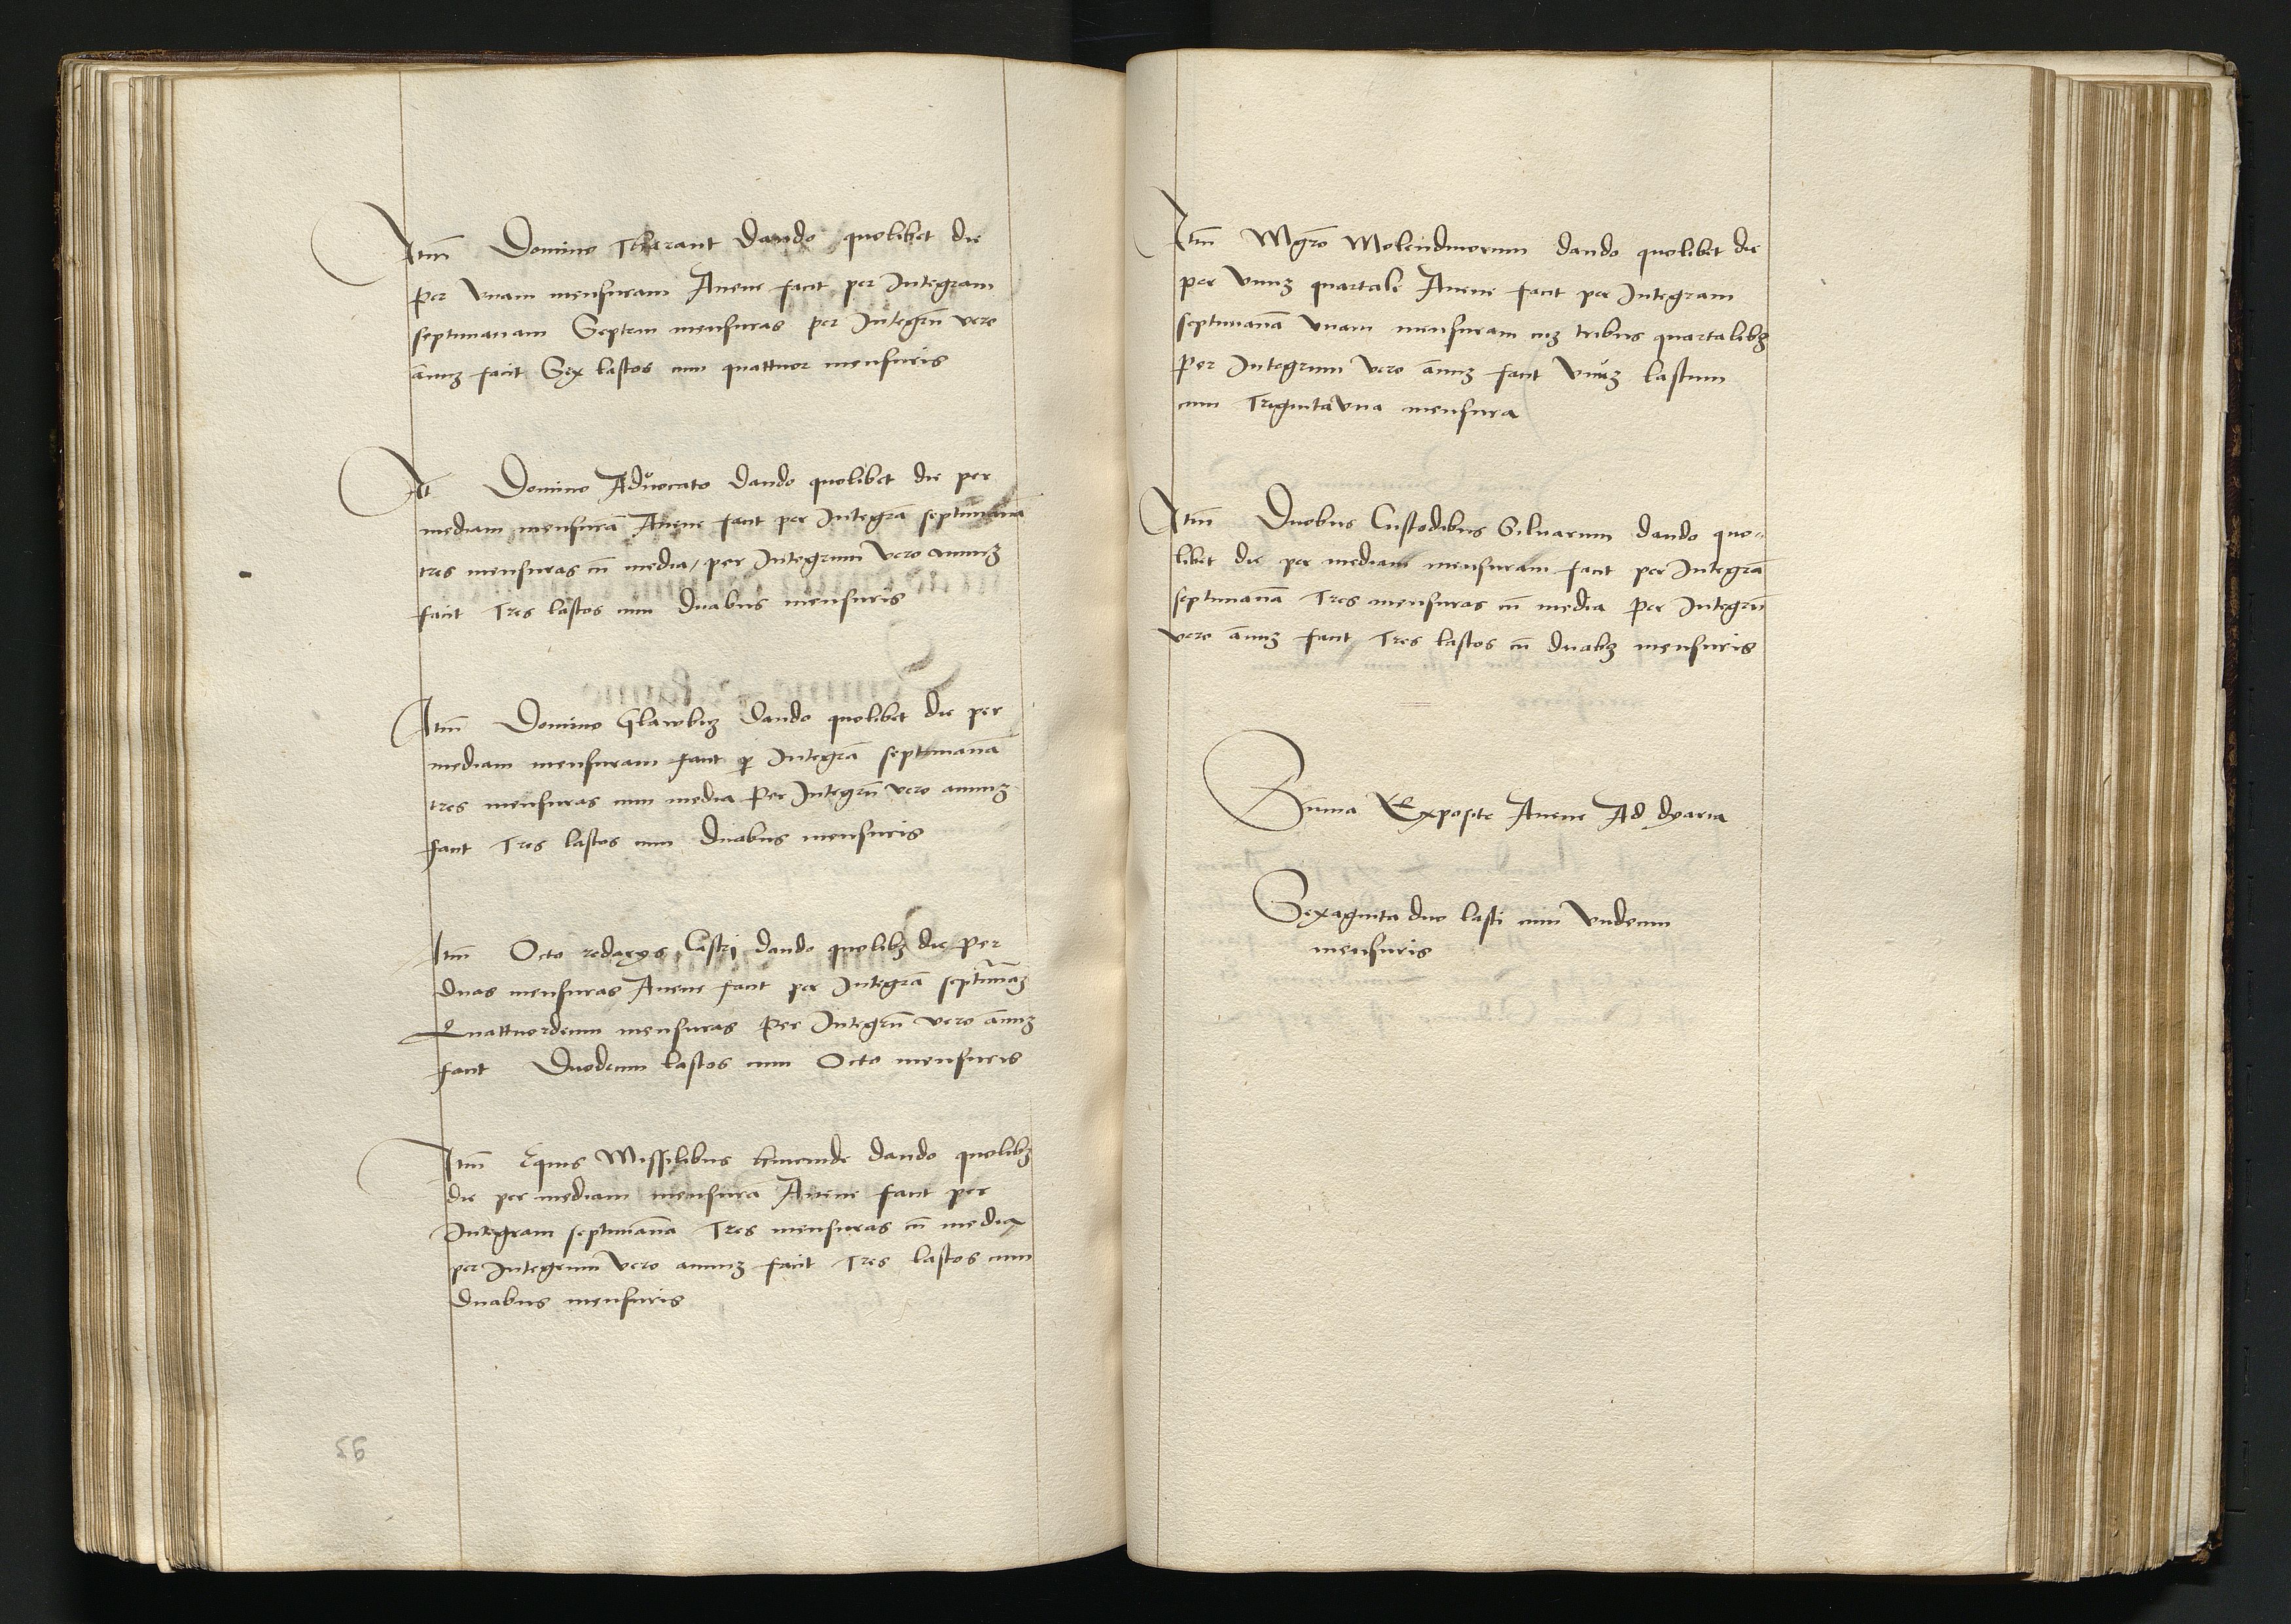 Itm̄ Domino Therant dando quolibet die
per vnam mensuram Auene facit per Integram
septimanam Septem mensuras per Integrū vero
annuʒ facit Sex lastos cum quattuor mensuris
It Domino Aduocato dando quolibet die per
mediam mensurā Auene facit per Integrā septimanā
tres mensuras cū media / per Integrum vero annuʒ
facit Tres lastos cum duabus mensuris
Itm̄ Domino Glawbiʒ dando quolibet die per
mediam mensuram facit ꝑ Integrā septimanā
tres mensuras cum media Per Integrū vero annuʒ
facit Tres lastos cum duabus mensuris
Itm̄ Octo redarys Castri dando quolibʒ die per
duas mensuras Auene facit per Integrā septimāaʒ
Quattuordecim mensuras Per Integrū vero ānuʒ
facit Duodecim lastos cum Octo mensuris
Itm̄ Equis Missilibus dando quolibʒ
die per mediam mensurā Auene facit per
Integram septimanā Tres mensuras cū media
per Integrum vero annuʒ facit Tres lastos cum
duabus mensuris
56
Itm̄ Mgr̄o Molendinorum dando quolibet die
per vnuʒ quartale Auene facit per Integram
septimanā vnam mensuram cuʒ tribus quartalibʒ
Per Integrum vero ānuʒ facit vnuʒ lastum
cum Trigintavna mensura
Itm̄ Duobus Custodibus Siluarum dando quo-
libet die per mediam mensuram facit per Integrā
septimanā Tres mensuras cū media Per Integrū
vero ānuʒ facit Tres lastos cū duabʒ mensuris
Sūma Exposite Auene Ad dyaria
Sexaginta duo lasti cum vndecim
mensuris